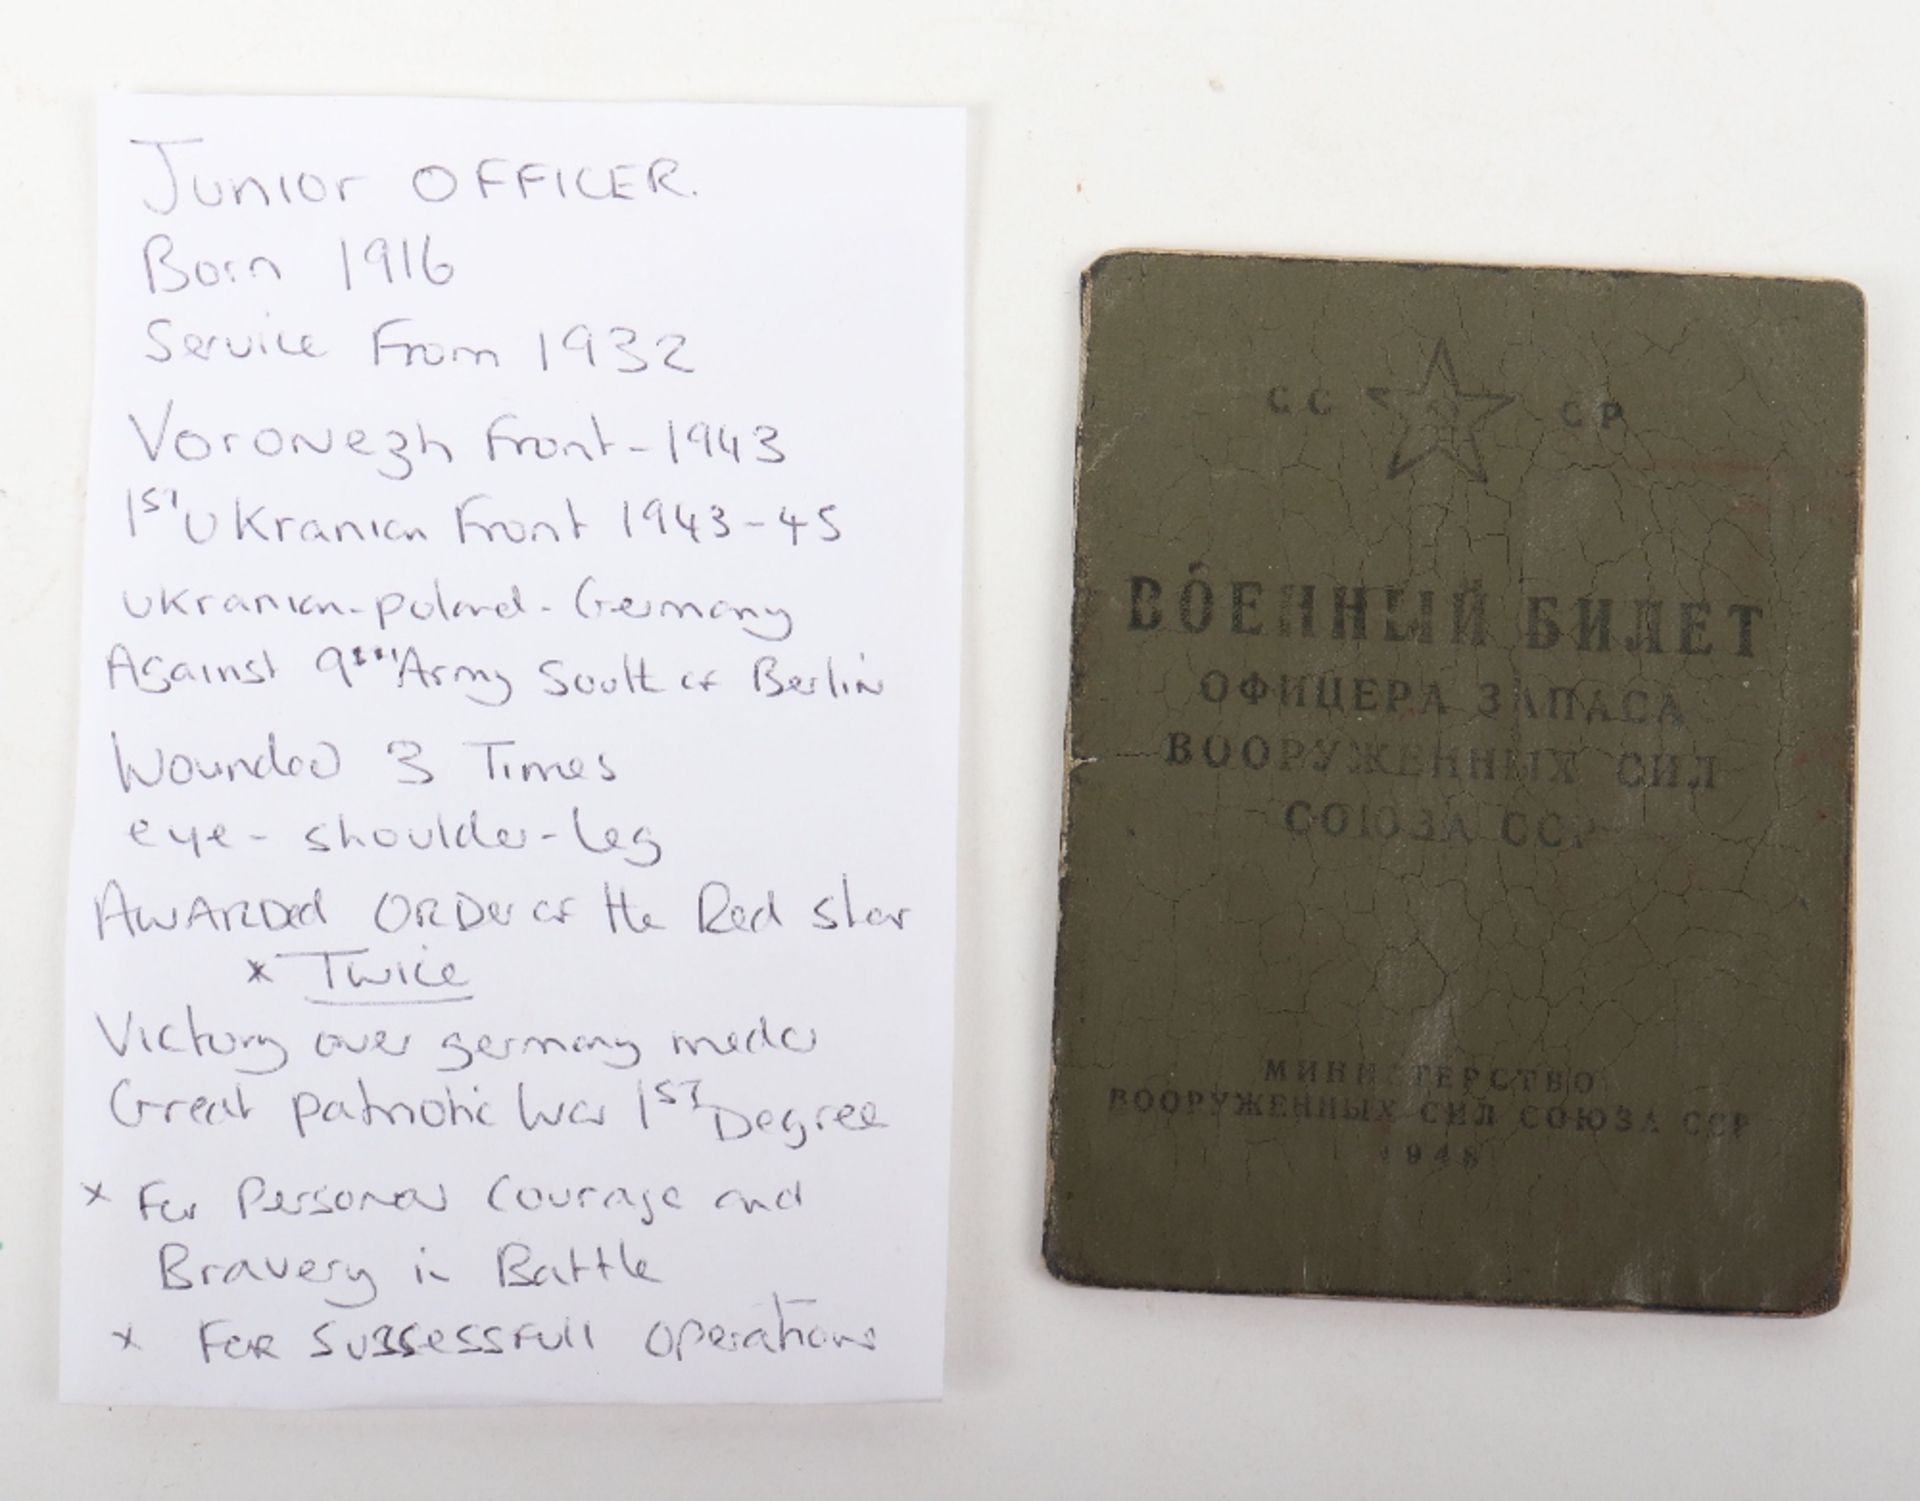 Junior OFFICER.
Born 1916
Service From 1932
Voronezh Front - 1943
1ST Ukranian Front 1943-45
Ukranian - Poland - Germany
Against 9th Army South of Berlin
Wounded 3 Times
eye - shoulder - Leg
AWARDed ORDer of the Red Star
* Twice
Victory over germany medal
Great patriotic War 1ST Degree
* For Personal Courage and
Bravery in Battle
* FOR Sussessfull operations
СС СР
ВОЕННЫЙ БИЛЕТ
ОФИЦЕРА ЗАПАСА
ВООРУЖЕННЫХ СИЛ
СОЮЗА ССР
МИНИСТЕРСТВО
ВООРУЖЕННЫХ СИЛ СОЮЗА ССР
1948